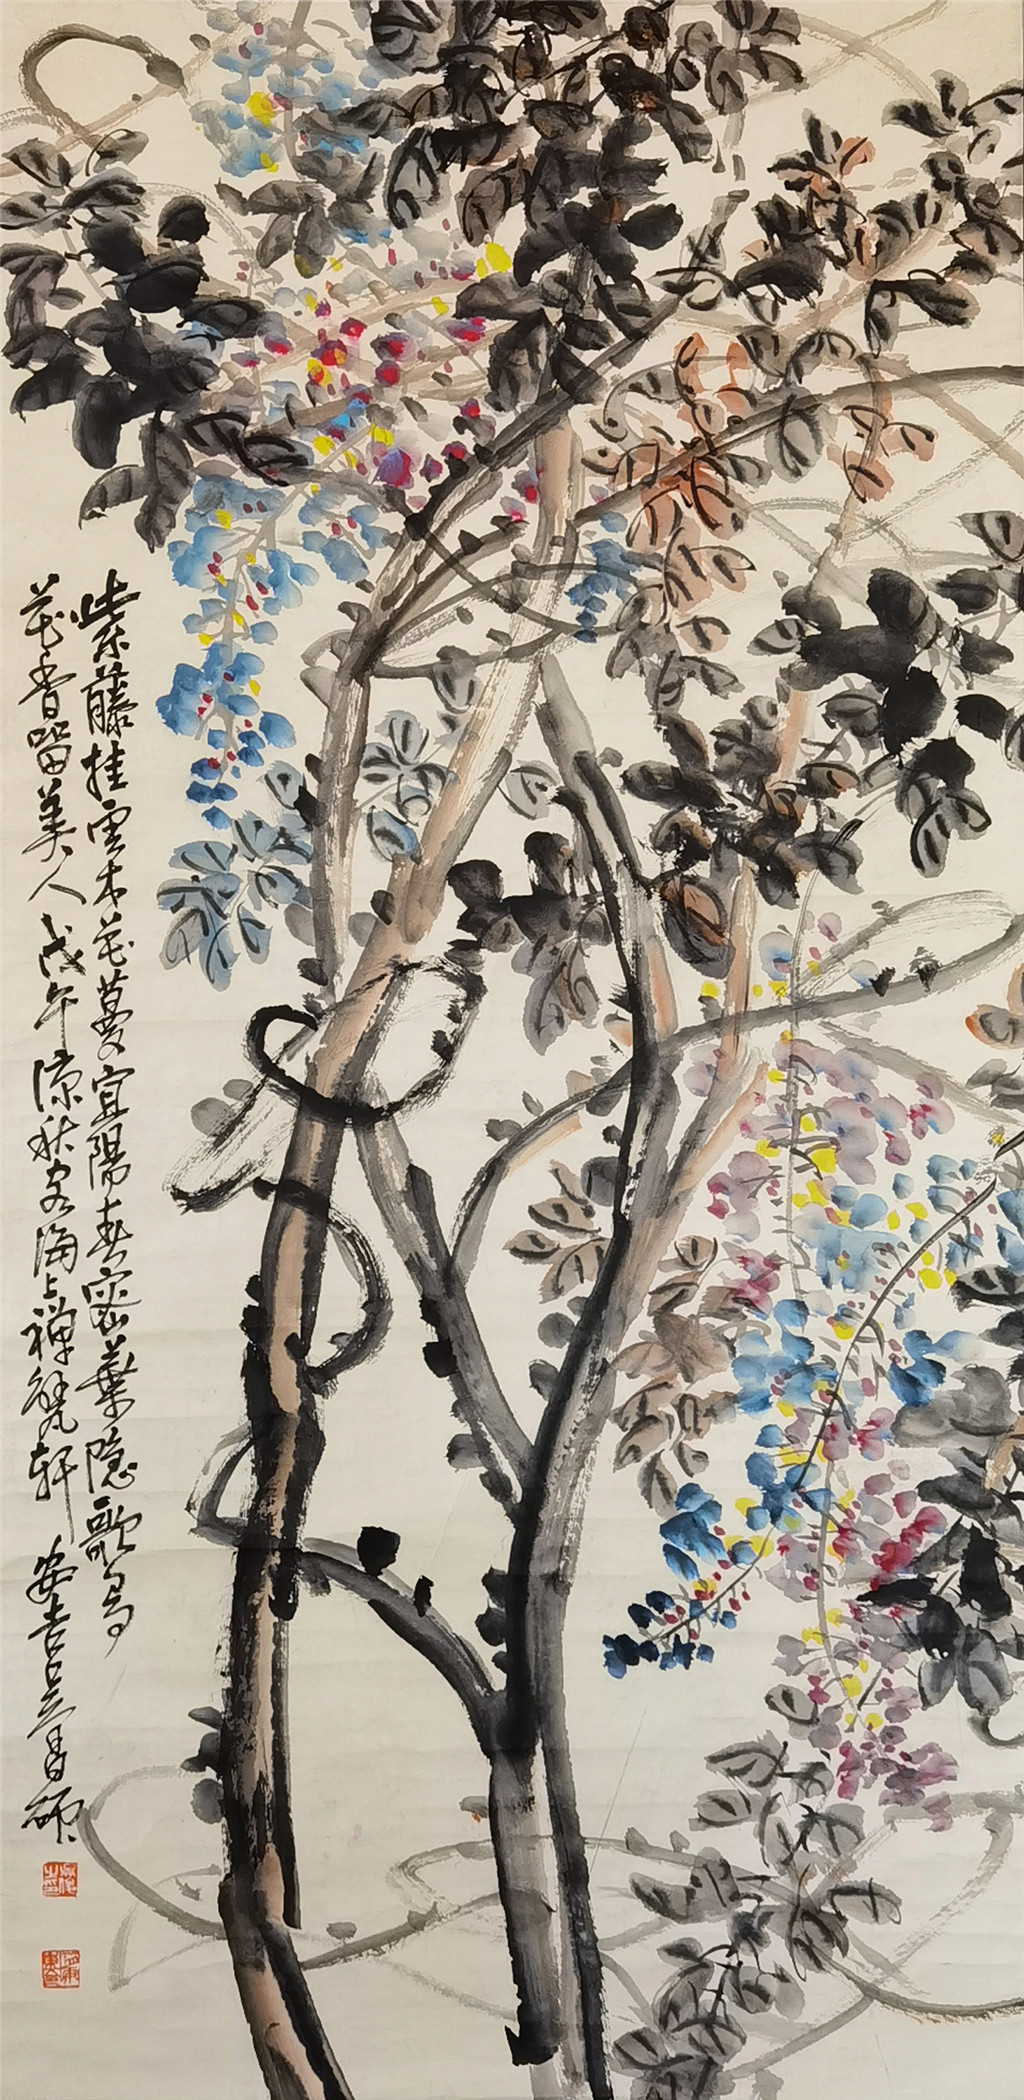 紫藤挂雲木花蔓宜陽春密葉隱歌鳥
花香留美人戊午涼秋客海上禪甓軒安吉吳昌碩